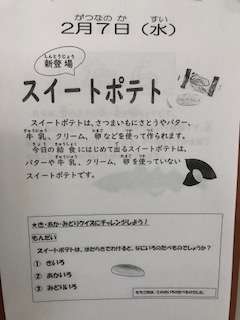 がつなのか すい
2月7日（水）
しんとうじょう
新登場
スイートポテト
スイートポテトは、さつまいもにさとうやバター、
ぎゅうにゅう たまご つか つく
牛乳、クリーム、卵などを使って作られます。
きょう きゅうしょく
今日の給食にはじめて出るスイートポテトは、
ぎゅうにゅう たまご つか
バターや牛乳、クリーム、卵を使っていない
スイートポテトです。
★き・あか・みどりクイズにチャレンジしよう！
もんだい
スイートポテトは、はたらきでわけると、なにいろのたべものでしょうか？
① きいろ
② あかいろ
③ みどりいろ